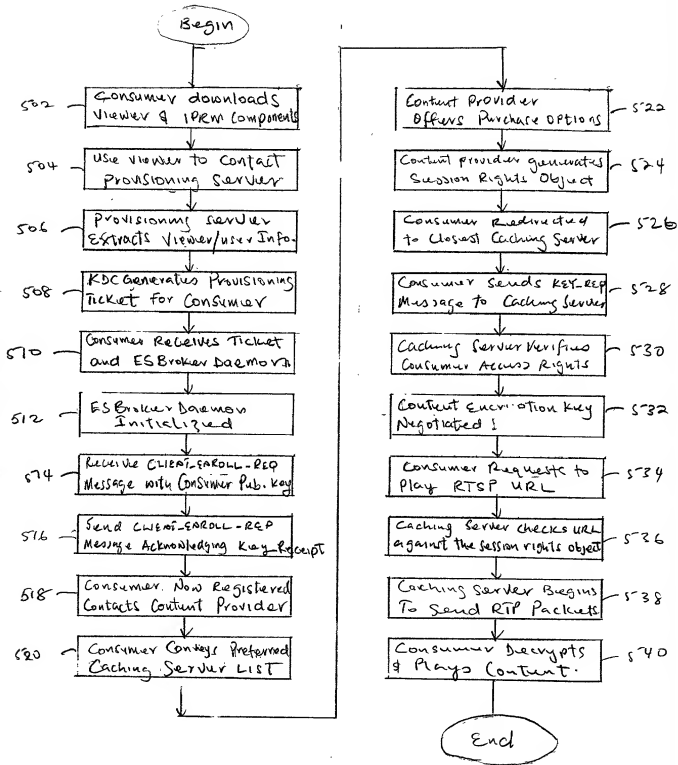 Begin
502
Consumer downloads
Viewer & IPRM Components
504
Use Viewer to Contact
Provisioning Server
506
Provisioning Server
Extracts Viewer/user Info.
508
KDC Generates Provisioning
Ticket for Consumer
510
Consumer Receives Ticket
and ESBroker Daemon
512
ESBroker Daemon
Initialized
514
Receive CLIENT_ENROLL_REQ
Message with Consumer Pub. Key
516
Send CLIENT_ENROLL_REP
Message Acknowledging Key Receipt
518
Consumer Now Registered
Contacts Content Provider
520
Consumer Conveys Preferred
Caching Server LIST
Content Provider
Offers Purchase Options
522
Content provider generates
Session Rights Object
524
Consumer Redirected
to Closest Caching Server
526
Consumer Sends KEY_REP
Message to Caching Server
528
Caching Server Verifies
Consumer Access Rights
530
Content Encription Key
Negotiated
532
Consumer Requests to
Play RTSP URL
534
Caching Server checks URL
against the session rights object
536
Caching Server Begins
To Send RTP Packets
538
Consumer Decrypts
& Plays Content.
540
End